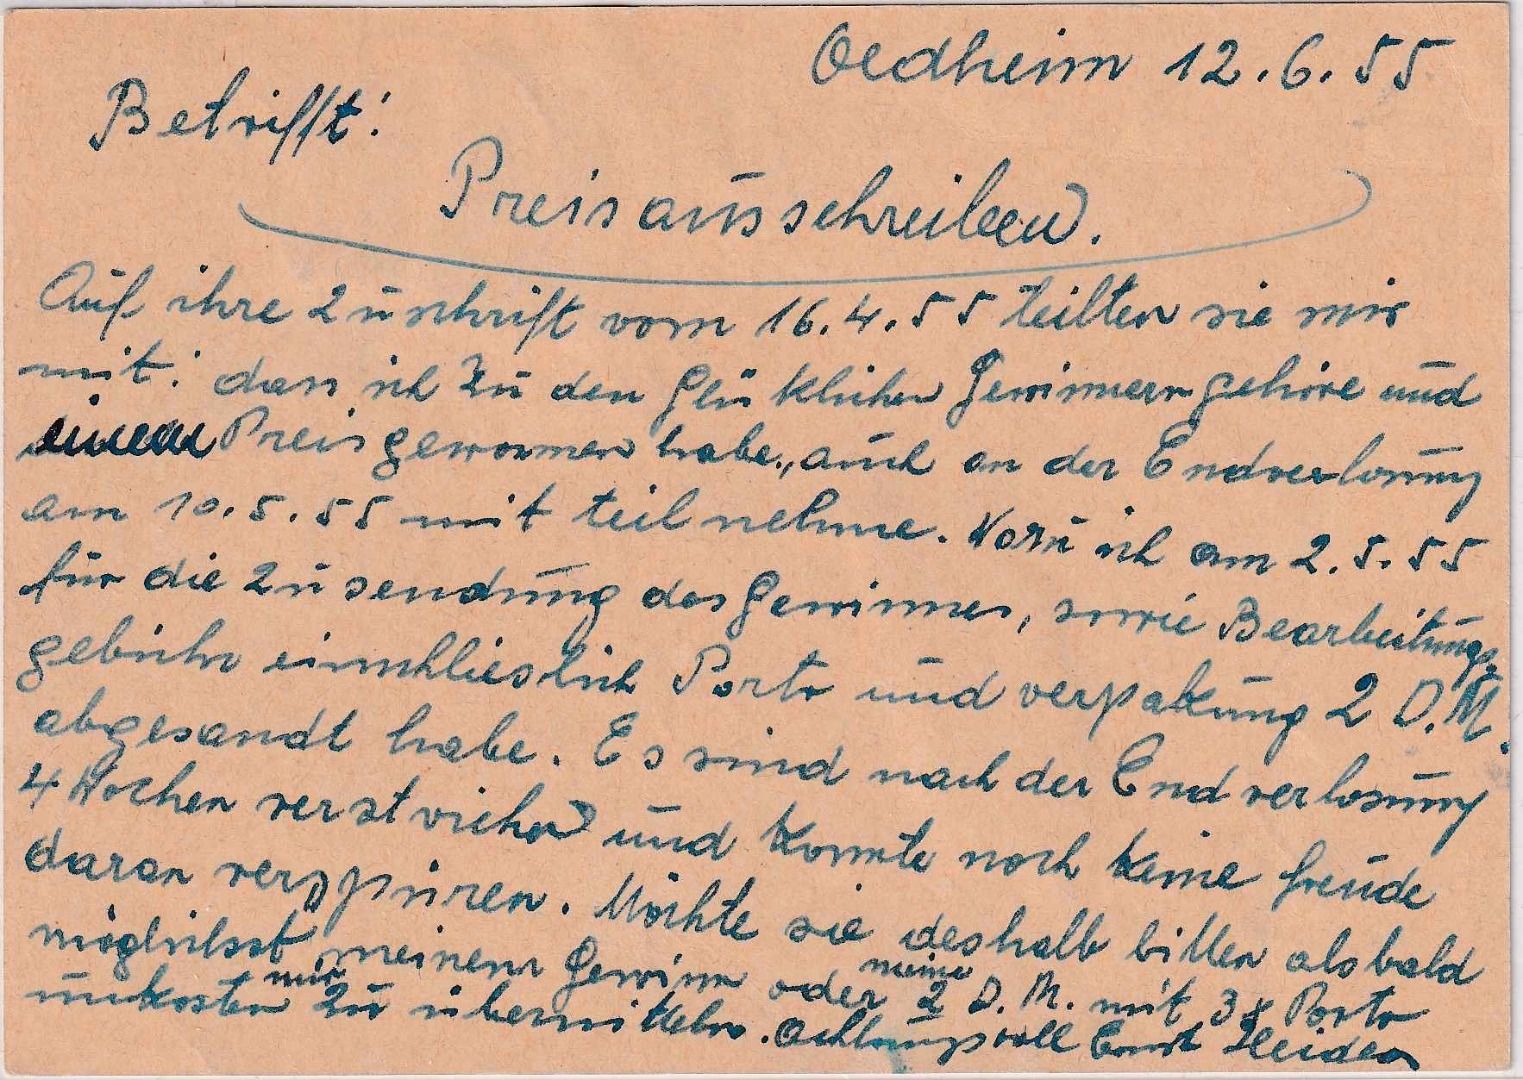 Oedheim 12.6.55
Betrifft:
Preisausschreiben.
Auf ihre Zuschrift vom 16.4.55 teilten sie mir
mit: dass ich zu den Glüklichen Gewinnern gehöre und
einen Preis gewonnen habe, auch an der Endverlosung
am 10.5.55 mit teil nehme. Vozu ich am 2.5.55
für die Zusendung des Gewinnes, sowie Bearbeitungs-
gebühr einschlieslich Porto und verpakung 2 D.M.
abgesandt habe. Es sind nach der Endverlosung
4 Wochen verstrichen und konnte noch keine freude
daran verspüren. Möchte sie deshalb bitten alsbald
möglichst meinen Gewinn oder meine 2 D.M. mit 3x Porto
unkosten mir zu übermitteln. Achtungsvoll Ernst Heiden